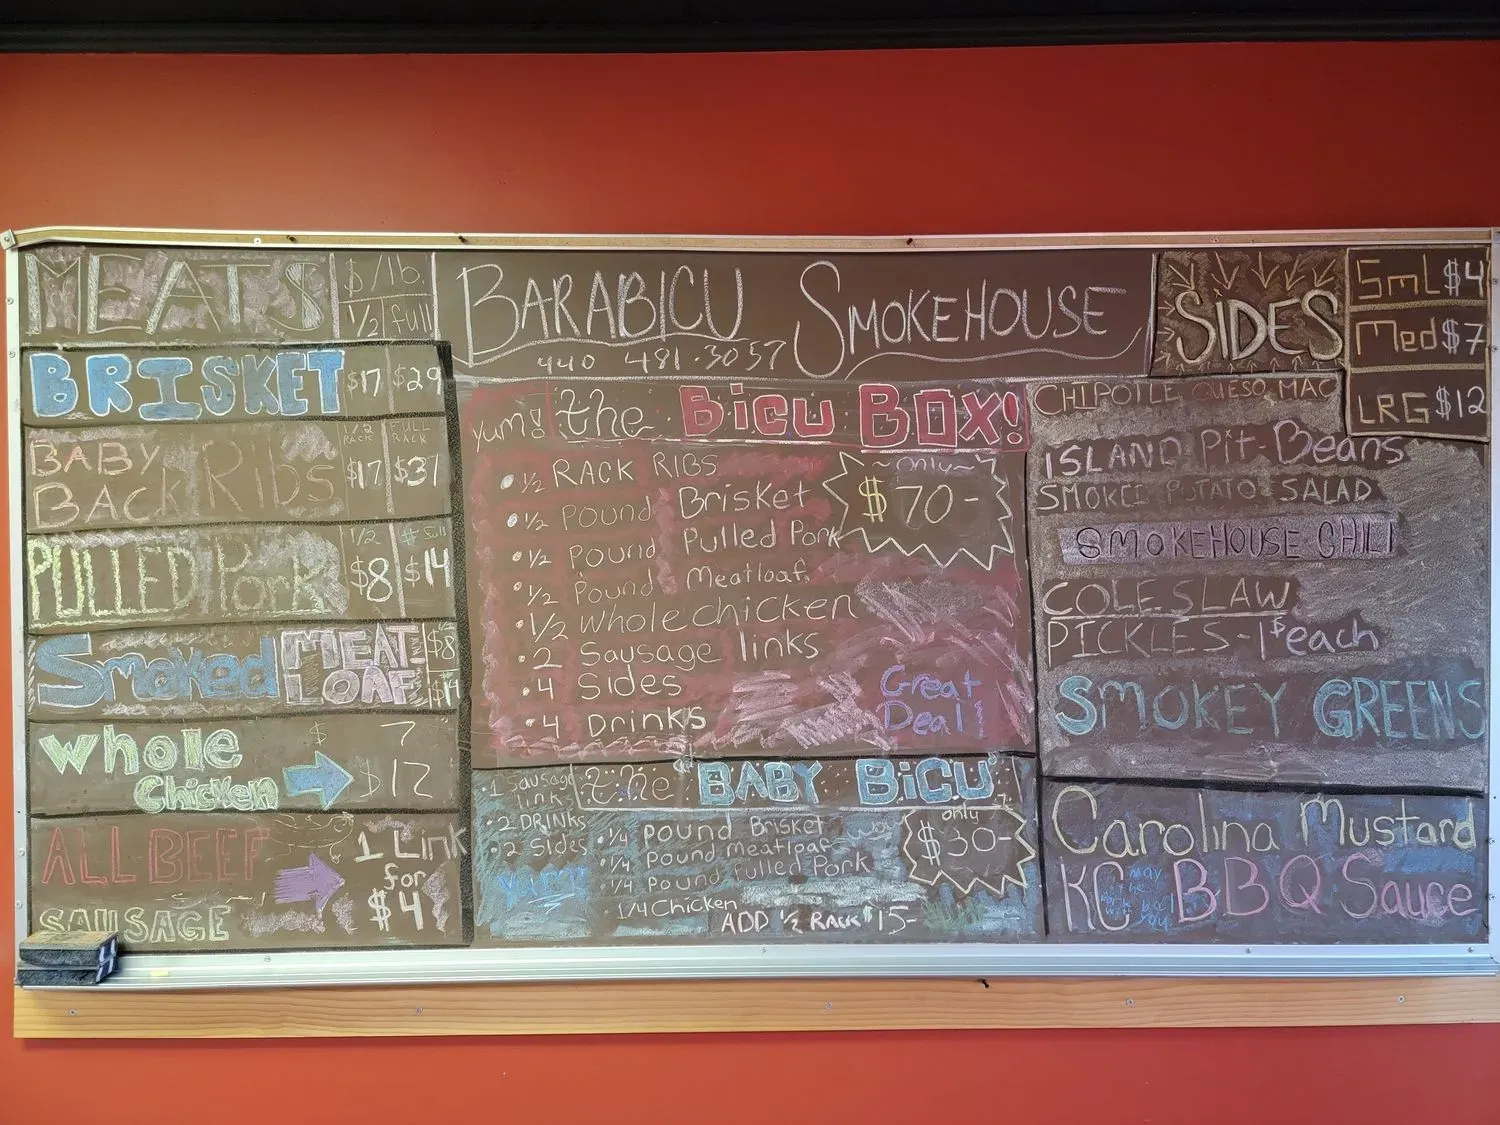 MEATS $/lb
1/2 full
BRISKET $17 $29
1/2 RACK FULL RACK
BABY BACK RIBS $17 $37
1/2 $ full
PULLED Pork $8 $14
Smoked MEAT-LOAF $8 $14
Whole $ 7
Chicken $12
ALL BEEF 1 Link
for
SAUSAGE $4
BARABICU SMOKEHOUSE
440 481-3057
yum! the Bicu BOX!
~only~
$70-
• 1/2 RACK RIBS
• 1/2 Pound Brisket
• 1/2 Pound Pulled Pork
• 1/2 Pound Meatloaf
• 1/2 whole chicken
• 2 Sausage links
• 4 Sides
• 4 Drinks
Great
Deal!
the "BABY BiCU"
only
$30-
• 1 Sausage
links
• 2 DRINKS
• 2 Sides
Yum!
• 1/4 Pound Brisket
• 1/4 Pound Meatloaf
• 1/4 Pound Pulled Pork
1/4 Chicken
ADD 1/2 Rack $15-
SIDES
SmL $4
Med $7
LRG $12
CHIPOTLE QUESO MAC
ISLAND Pit-Beans
SMOKED POTATO SALAD
SMOKEHOUSE CHILI
COLESLAW
PICKLES-1$each
SMOKEY GREENS
Carolina Mustard
KC BBQ Sauce
may
the
pork
with
you